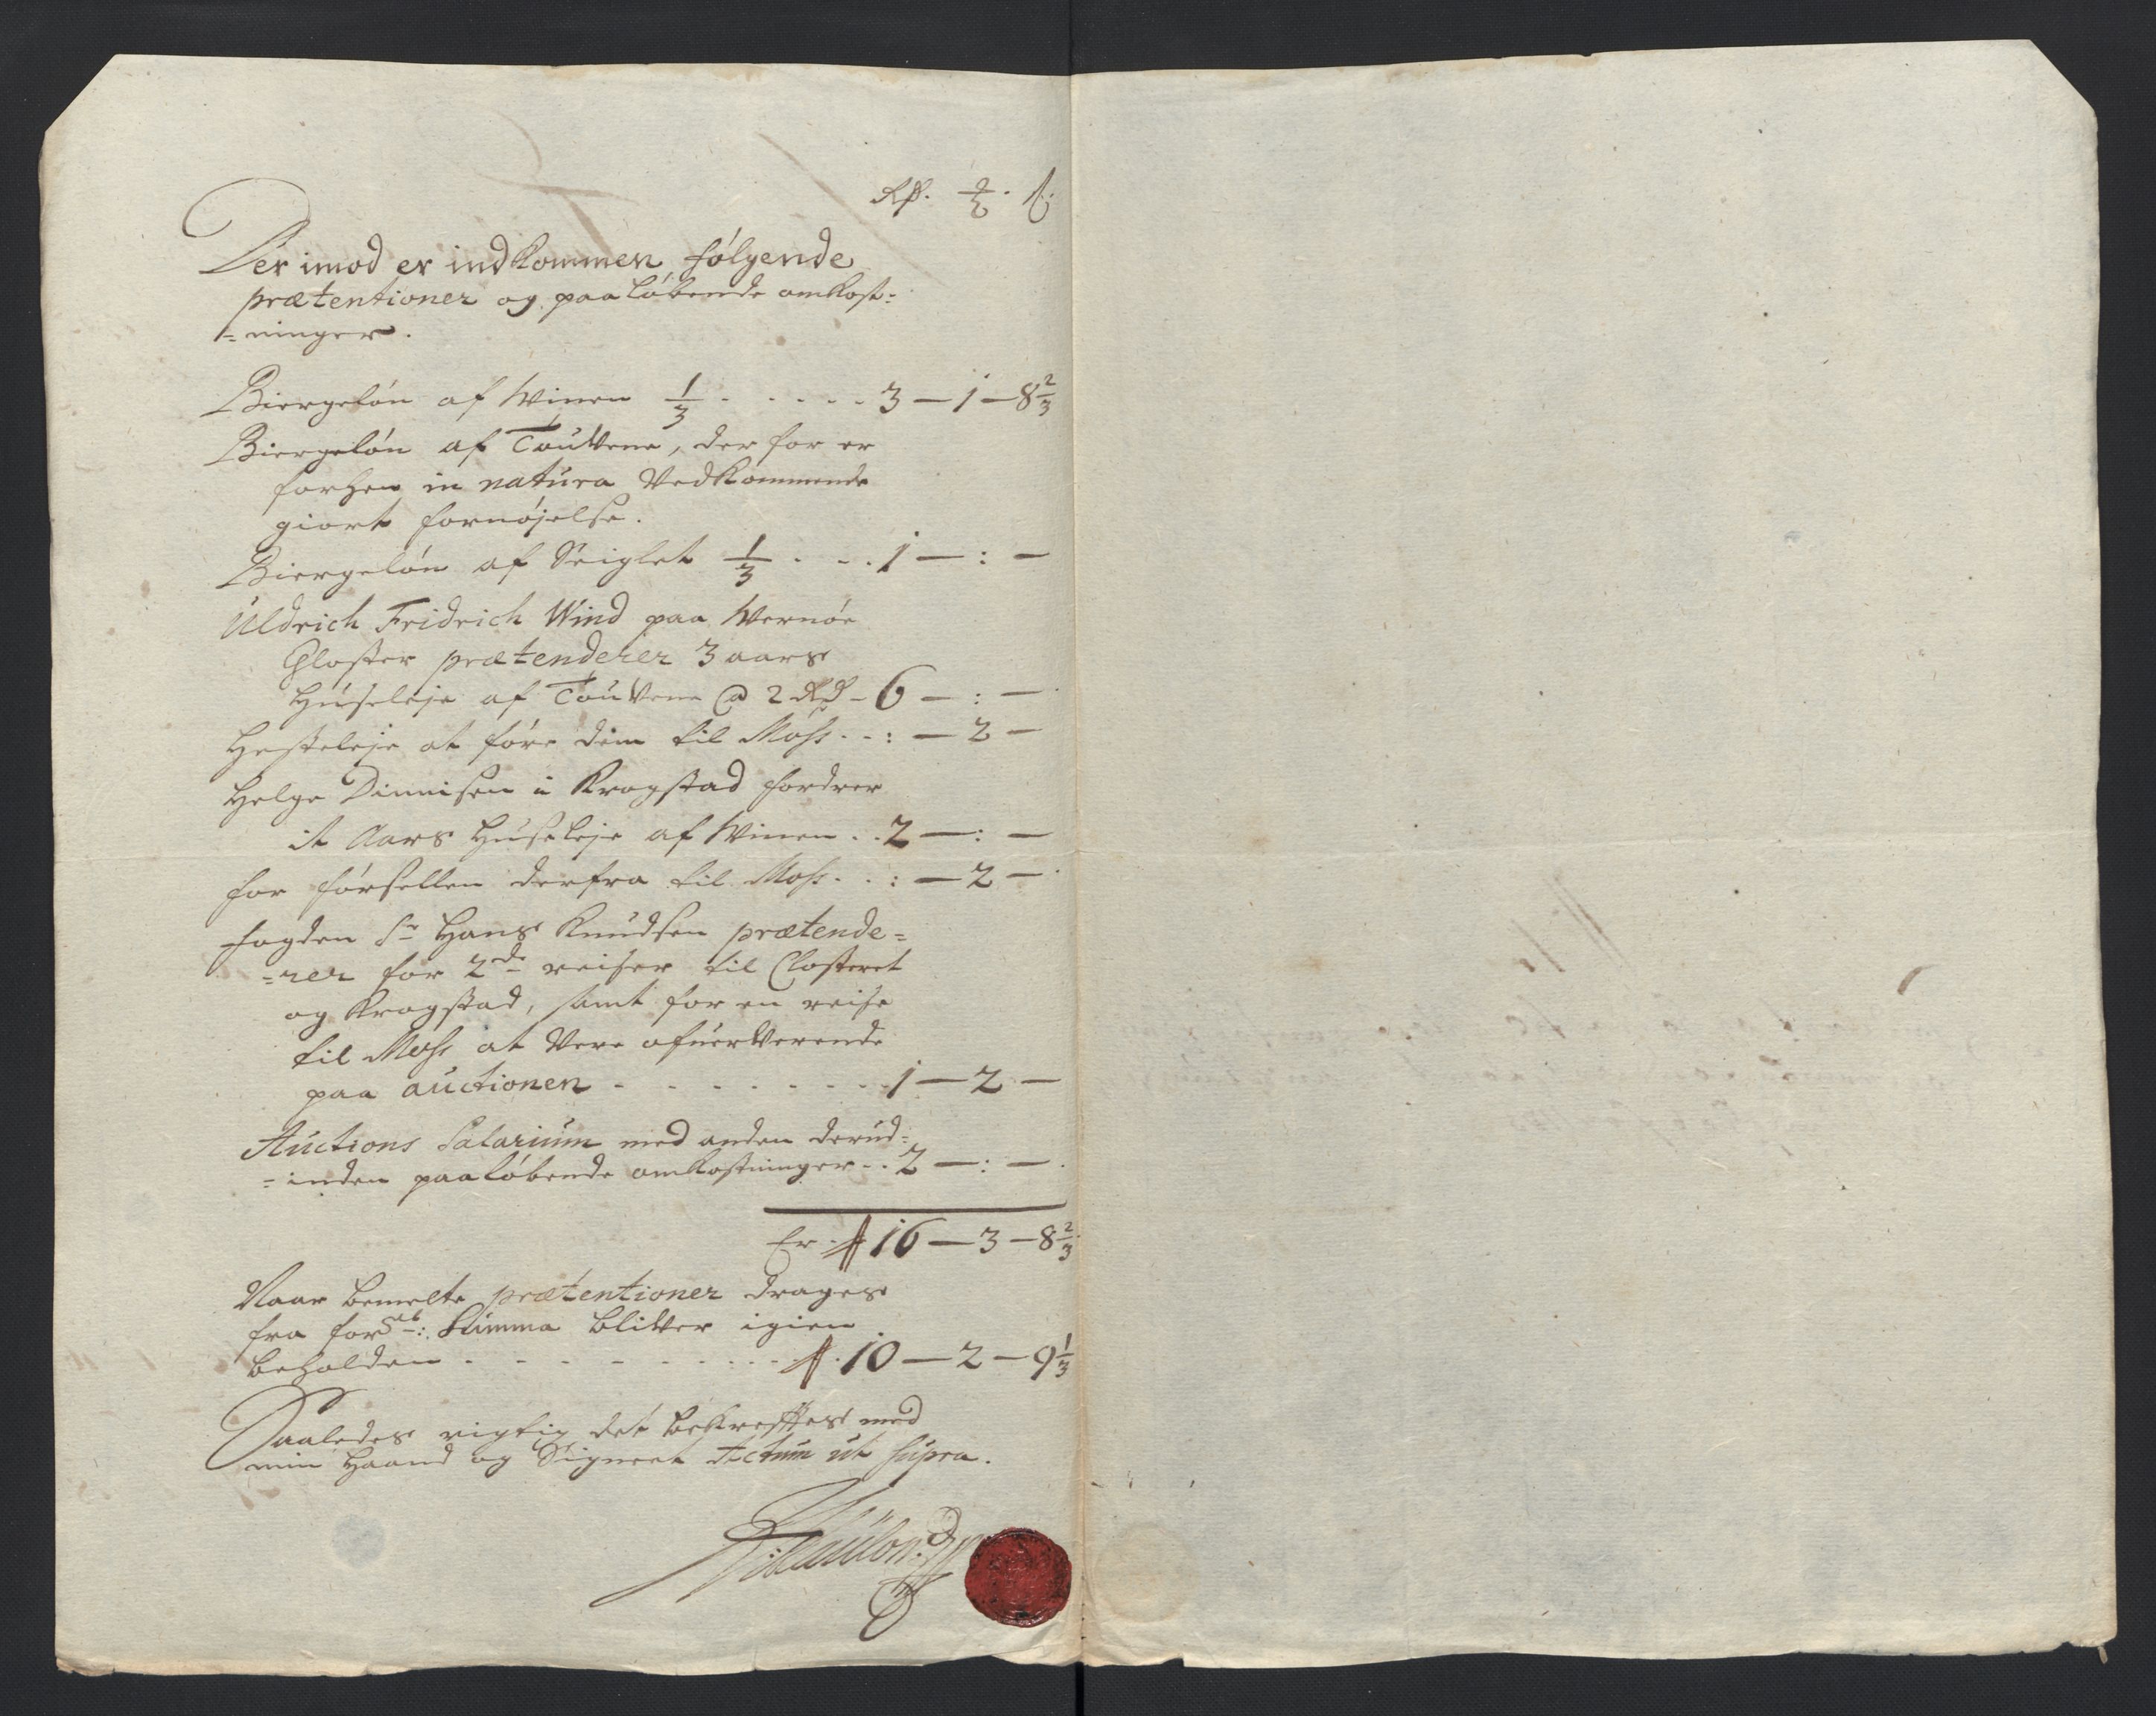 Rd. ort. s:
Der imod er indkommen følgende
prætentioner og paaløbende omkost-
=ninger.
Biergeløn af Winen 1/3 - - - - - 3 — 1 — 8 2/3
Biergeløn af Touvene, der for er
forhen in natura Vedkommende
giort fornøjelse.
Biergeløn af Seiglet 1/3 - - - 1 — : —
Uldrich Fridrich Wind paa Wernøe
Closter prætenderer 3 aars
Huseleje af Touvene @ 2 Rd - 6 — : —
Hesteleje at føre dem til Moss - - : — 2 —
Helge Dinnisen i Krogstad fordrer
it Aars Huseleje af Winen - - 2 — : —
for førsellen derfra til Moss - - : — 2 —
Fogden Sr Hans Knudsen prætende=
=rer for 2de reiser til Closteret
og Krogstad, samt for en reise
til Moss at Være ofverværende
paa auctionen - - - - - - - - 1 — 2 —
Auctions Salarium med anden derud=
=inden paaløbende omkostninger - - 2 — : —
Er - 16 — 3 — 8 2/3
Naar bemelte prætentioner drages
fra forsch: Summa blifver igien
beholden - - - - - - - - 10 — 2 — 9 1/3
Saaledes rigtig det bekreftes med
min Haand og Signet Actum ut supra.